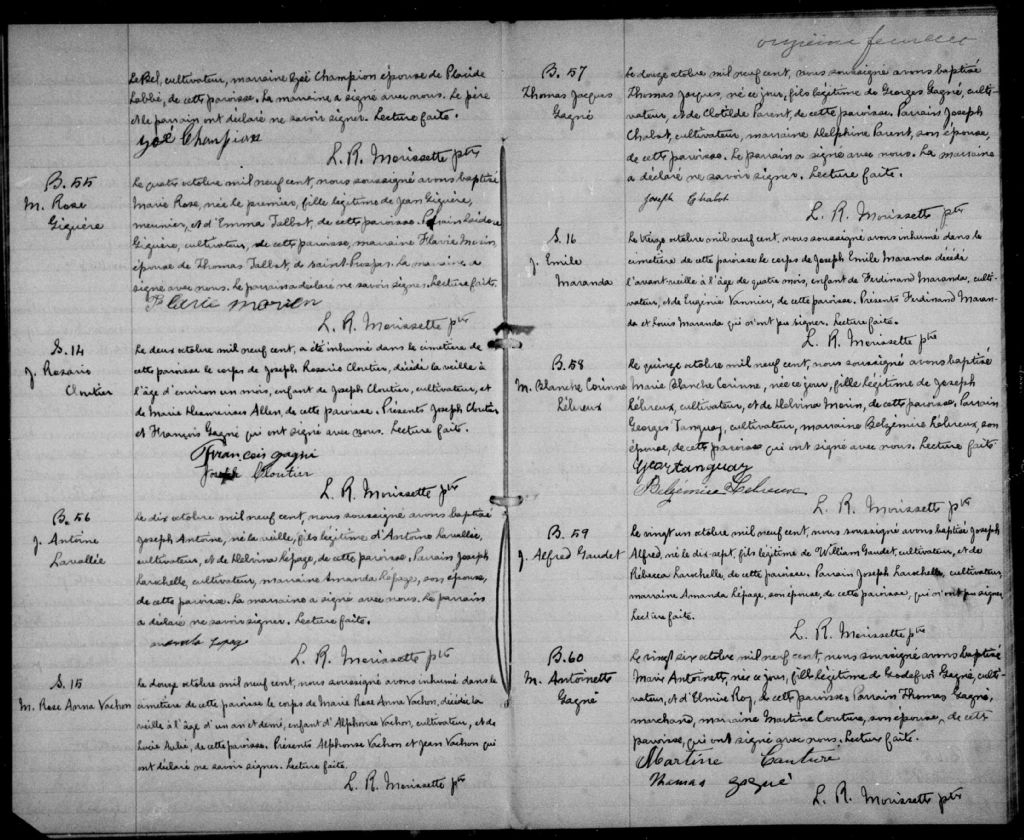 LeBel, cultivateur, marraine Zoé Champion épouse de Placide
Labbé, de cette paroisse. La marraine a signé avec nous. Le père
et le parrain ont déclaré ne savoir signer. Lecture faite.
Zoé Champion
L. R. Morissette ptre
B. 55
M. Rose
Giguère
Le quatre octobre mil neuf cent, nous soussigné avons baptisé
Marie Rose, née le premier, fille légitime de Jean Giguère,
meunier, et d'Emma Talbot, de cette paroisse. Parrain Isidore
Giguère, cultivateur, de cette paroisse, marraine Flavie Morin,
épouse de Thomas Talbot, de saint. La marraine a
signé avec nous. Le parrain a déclaré ne savoir signer. Lecture faite.
Flavie Morien
L. R. Morissette ptre
S. 14
J. Rosario
Cloutier
Le deux octobre mil neuf cent, a été inhumé dans le cimetière de
cette paroisse le corps de Joseph Rosario Cloutier, décédé la veille à
l'âge d'environ un mois, enfant de Joseph Cloutier, cultivateur, et
de Marie Allen, de cette paroisse. Présents Joseph Cloutier
et François Gagné qui ont signé avec nous. Lecture faite.
François gagné
Joseph Cloutier
L. R. Morissette ptre
B. 56
J. Antoine
Lavallée
Le dix octobre mil neuf cent, nous soussigné avons baptisé
Joseph Antoine, né la veille, fils légitime d'Antoine Lavallée,
cultivateur, et de Delvina Lépage, de cette paroisse. Parrain Joseph
Larochelle, cultivateur, marraine Amanda Lépage, son épouse,
de cette paroisse. La marraine a signé avec nous. Le parrain
a déclaré ne savoir signer. Lecture faite.
L. R. Morissette ptre
S. 15
M. Rose Anna Vachon
Le douze octobre mil neuf cent, nous soussigné avons inhumé dans le
cimetière de cette paroisse le corps de Marie Rose Anna Vachon, décédée la
veille à l'âge d'un an et demi, enfant d'Alphonse Vachon, cultivateur, et de
Lucie Aubé, de cette paroisse. Présents Alphonse Vachon et Jean Vachon qui
ont déclaré ne savoir signer. Lecture faite.
L. R. Morissette ptre
onzième feuillet
B. 57
Thomas Jacques
Gagné
Le douze octobre mil neuf cent, nous soussigné avons baptisé
Thomas Jacques, né ce jour, fils légitime de Georges Gagné, culti-
vateur, et de Clotilde Parent, de cette paroisse. Parrain Joseph
Chabot, cultivateur, marraine Delphine Parent, son épouse,
de cette paroisse. Le parrain a signé avec nous. La marraine
a déclaré ne savoir signer. Lecture faite.
Joseph Chabot
L. R. Morissette ptre
S. 16
J. Emile
Maranda
Le treize octobre mil neuf cent, nous soussigné avons inhumé dans le
cimetière de cette paroisse le corps de Joseph Emile Maranda décédé
l'avant-veille à l'âge de quatre mois, enfant de Ferdinand Maranda, culti-
vateur, et de Eugénie Vannier, de cette paroisse. Présents Ferdinand Maran-
da et Louis Maranda qui n'ont pu signer. Lecture faite.
L. R. Morissette ptre
B. 58
M. Blanche Corinne
Lébreux
Le quinze octobre mil neuf cent, nous soussigné avons baptisé
Marie Blanche Corinne, née ce jour, fille légitime de Joseph
Lébreux, cultivateur, et de Delvina Morin, de cette paroisse. Parrain
Georges Tanguay, cultivateur, marraine Belzémire Lébreux, son
épouse, de cette paroisse qui ont signé avec nous. Lecture faite
Geo Tanguay
Belzémire Lebreux
L. R. Morissette ptre
B. 59
J. Alfred Gaudet
Le vingt un octobre mil neuf cent, nous soussigné avons baptisé Joseph
Alfred, né le dix-sept, fils légitime de William Gaudet, cultivateur, et de
Rébecca Larochelle, de cette paroisse. Parrain Joseph Larochelle, cultivateur,
marraine Amanda Lépage, son épouse, de cette paroisse, qui n'ont pu signer.
Lecture faite.
L. R. Morissette ptre
B. 60
M. Antoinette
Gagné
Le vingt six octobre mil neuf cent, nous soussigné avons baptisé
Marie Antoinette, née ce jour, fille légitime de Godefroi Gagné, culti-
vateur, et d'Elmire Roy, de cette paroisse. Parrain Thomas Gagné,
marchand, marraine Martine Couture, son épouse, de cette
paroisse, qui ont signé avec nous. Lecture faite.
Martine Couture
Thomas gagné
L. R. Morissette ptre